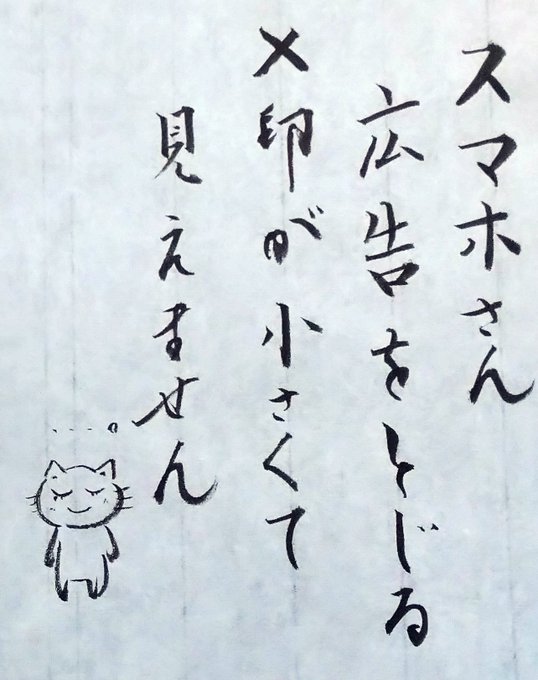 スマホさん
広告をとじる
×印が小さくて
見えません